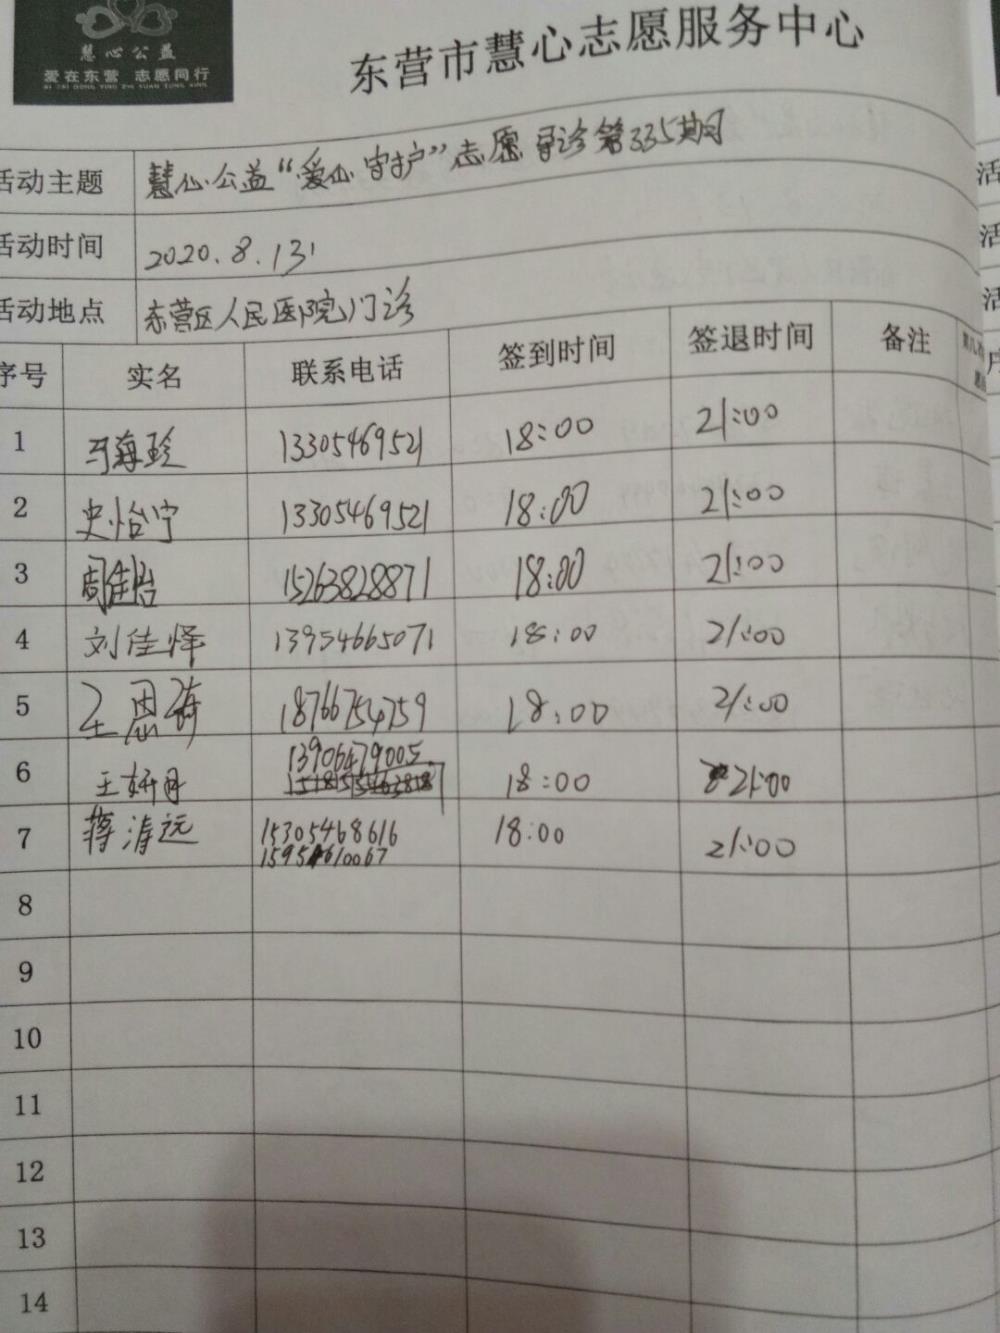 慧心公益
爱在东营 志愿同行
AI ZAI DONG YING ZHI YUAN TONG XING
东营市慧心志愿服务中心
活动主题 慧心公益“爱心守护”志愿导诊第335期
活动时间 2020.8.13
活动地点 东营区人民医院门诊
序号 实名 联系电话 签到时间 签退时间 备注
1 马海玲 13305469521 18:00 21:00
2 史怡宁 13305469521 18:00 21:00
3 周佳怡 15263828871 18:00 21:00
4 刘佳怿 13954665071 18:00 21:00
5 王恩 18766754759 18:00 21:00
6 王妍丹 13906479005 18:00 21:00
7 蒋涛远 15305468616 18:00 21:00
15954610067
8
9
10
11
12
13
14